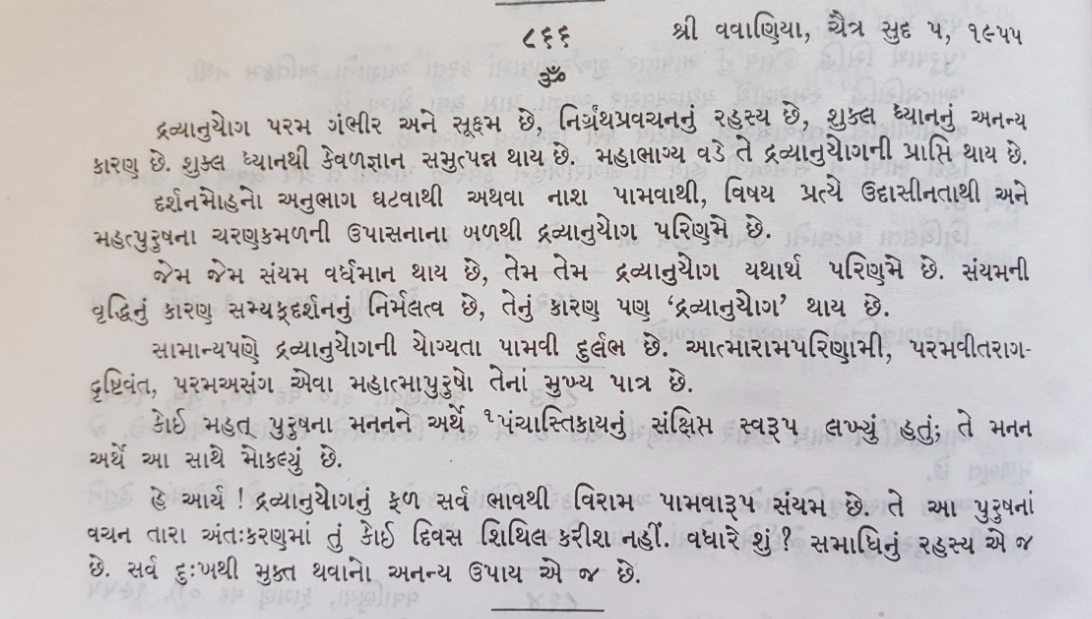 ૮૬૬ શ્રી વવાણિયા, ચૈત્ર સુદ ૫, ૧૯૫૫
ૐ
દ્રવ્યાનુયોગ પરમ ગંભીર અને સૂક્ષ્મ છે, નિર્ગ્રંથપ્રવચનનું રહસ્ય છે, શુક્લ ધ્યાનનું અનન્ય
કારણ છે. શુક્લ ધ્યાનથી કેવળજ્ઞાન સમુત્પન્ન થાય છે. મહાભાગ્ય વડે તે દ્રવ્યાનુયોગની પ્રાપ્તિ થાય છે.
દર્શનમોહનો અનુભાગ ઘટવાથી અથવા નાશ પામવાથી, વિષય પ્રત્યે ઉદાસીનતાથી અને
મહત્પુરુષના ચરણકમળની ઉપાસનાના બળથી દ્રવ્યાનુયોગ પરિણમે છે.
જેમ જેમ સંયમ વર્ધમાન થાય છે, તેમ તેમ દ્રવ્યાનુયોગ યથાર્થ પરિણમે છે. સંયમની
વૃદ્ધિનું કારણ સમ્યક્‌દર્શનનું નિર્મલત્વ છે, તેનું કારણ પણ ‘દ્રવ્યાનુયોગ’ થાય છે.
સામાન્યપણે દ્રવ્યાનુયોગની યોગ્યતા પામવી દુર્લભ છે. આત્મારામપરિણામી, પરમવીતરાગ-
દૃષ્ટિવંત, પરમઅસંગ એવા મહાત્માપુરુષો તેનાં મુખ્ય પાત્ર છે.
કોઈ મહત્ પુરુષના મનનને અર્થે ૧પંચાસ્તિકાયનું સંક્ષિપ્ત સ્વરૂપ લખ્યું હતું; તે મનન
અર્થે આ સાથે મોકલ્યું છે.
હે આર્ય ! દ્રવ્યાનુયોગનું ફળ સર્વ ભાવથી વિરામ પામવારૂપ સંયમ છે. તે આ પુરુષનાં
વચન તારા અંતઃકરણમાં તું કોઈ દિવસ શિથિલ કરીશ નહીં. વધારે શું? સમાધિનું રહસ્ય એ જ
છે. સર્વ દુઃખથી મુક્ત થવાનો અનન્ય ઉપાય એ જ છે.